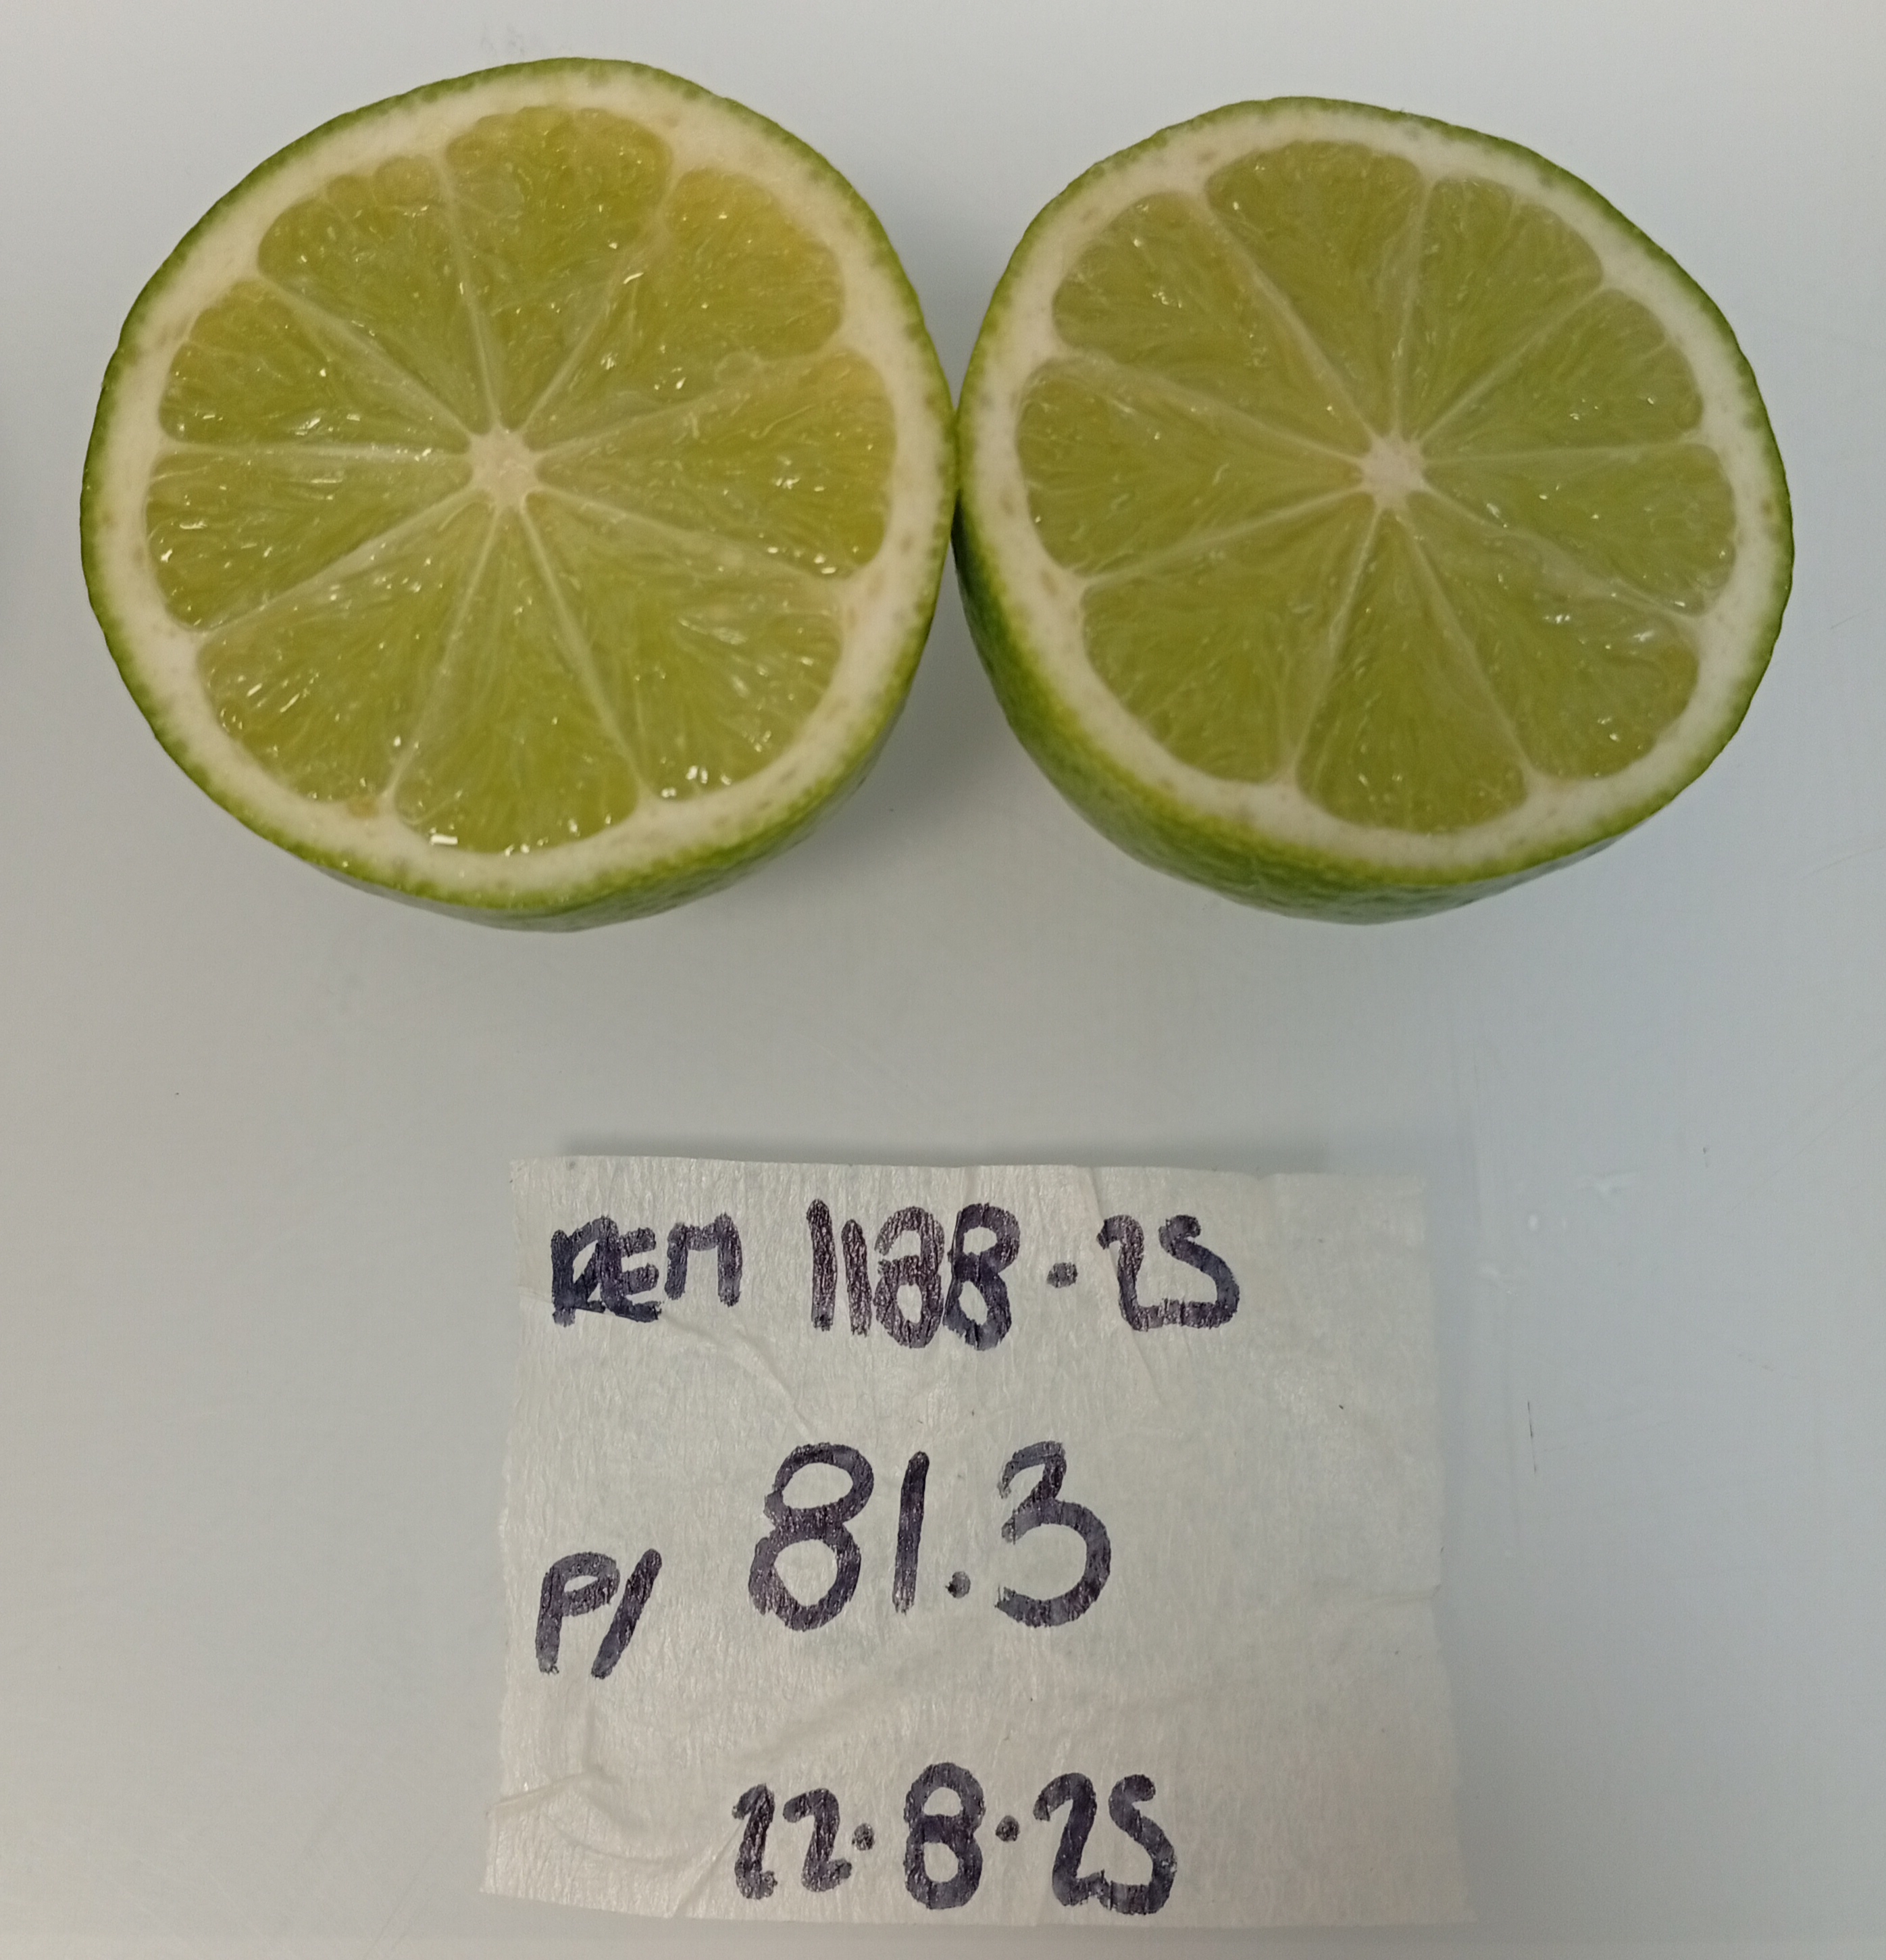 REM 1188-25
P/ 81.3
22.8.25